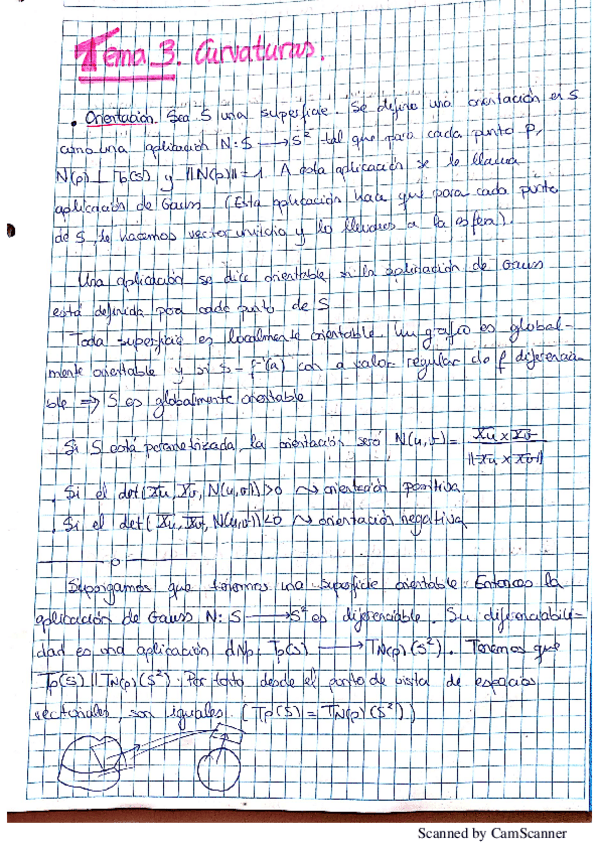 Tema 3. Curvaturas.
• Orientación. Sea S una superficie. Se define una orientación en S
como una aplicación N: S → S² tal que para cada punto P,
N(p) ⊥ Tp(S) y ||N(p)|| = 1. A esta aplicación se le llama
aplicación de Gauss (Esta aplicación hace que para cada punto
de S, le hacemos vector unitario y lo llevamos a la esfera).
Una aplicación se dice orientable si la aplicación de Gauss
está definida para cada punto de S
Toda superficie es localmente orientable. Un grafo es global-
mente orientable y si S = f⁻¹(a) con a valor regular de f diferencia-
ble ⇒ S es globalmente orientable
Si S está parametrizada, la orientación será N(u,v) = Xu × Xv / ||Xu × Xv||
. Si el det(Xu, Xv, N(u,v)) > 0 ⇝ orientación positiva
. Si el det(Xu, Xv, N(u,v)) < 0 ⇝ orientación negativa
Supongamos que tenemos una superficie orientable. Entonces la
aplicación de Gauss N: S → S² es diferenciable. Su diferenciabili-
dad es una aplicación dNp: Tp(S) → TN(p)(S²). Tenemos que
Tp(S) || TN(p)(S²). Por tanto desde el punto de vista de espacios
vectoriales, son iguales. (Tp(S) = TN(p)(S²))
Scanned by CamScanner